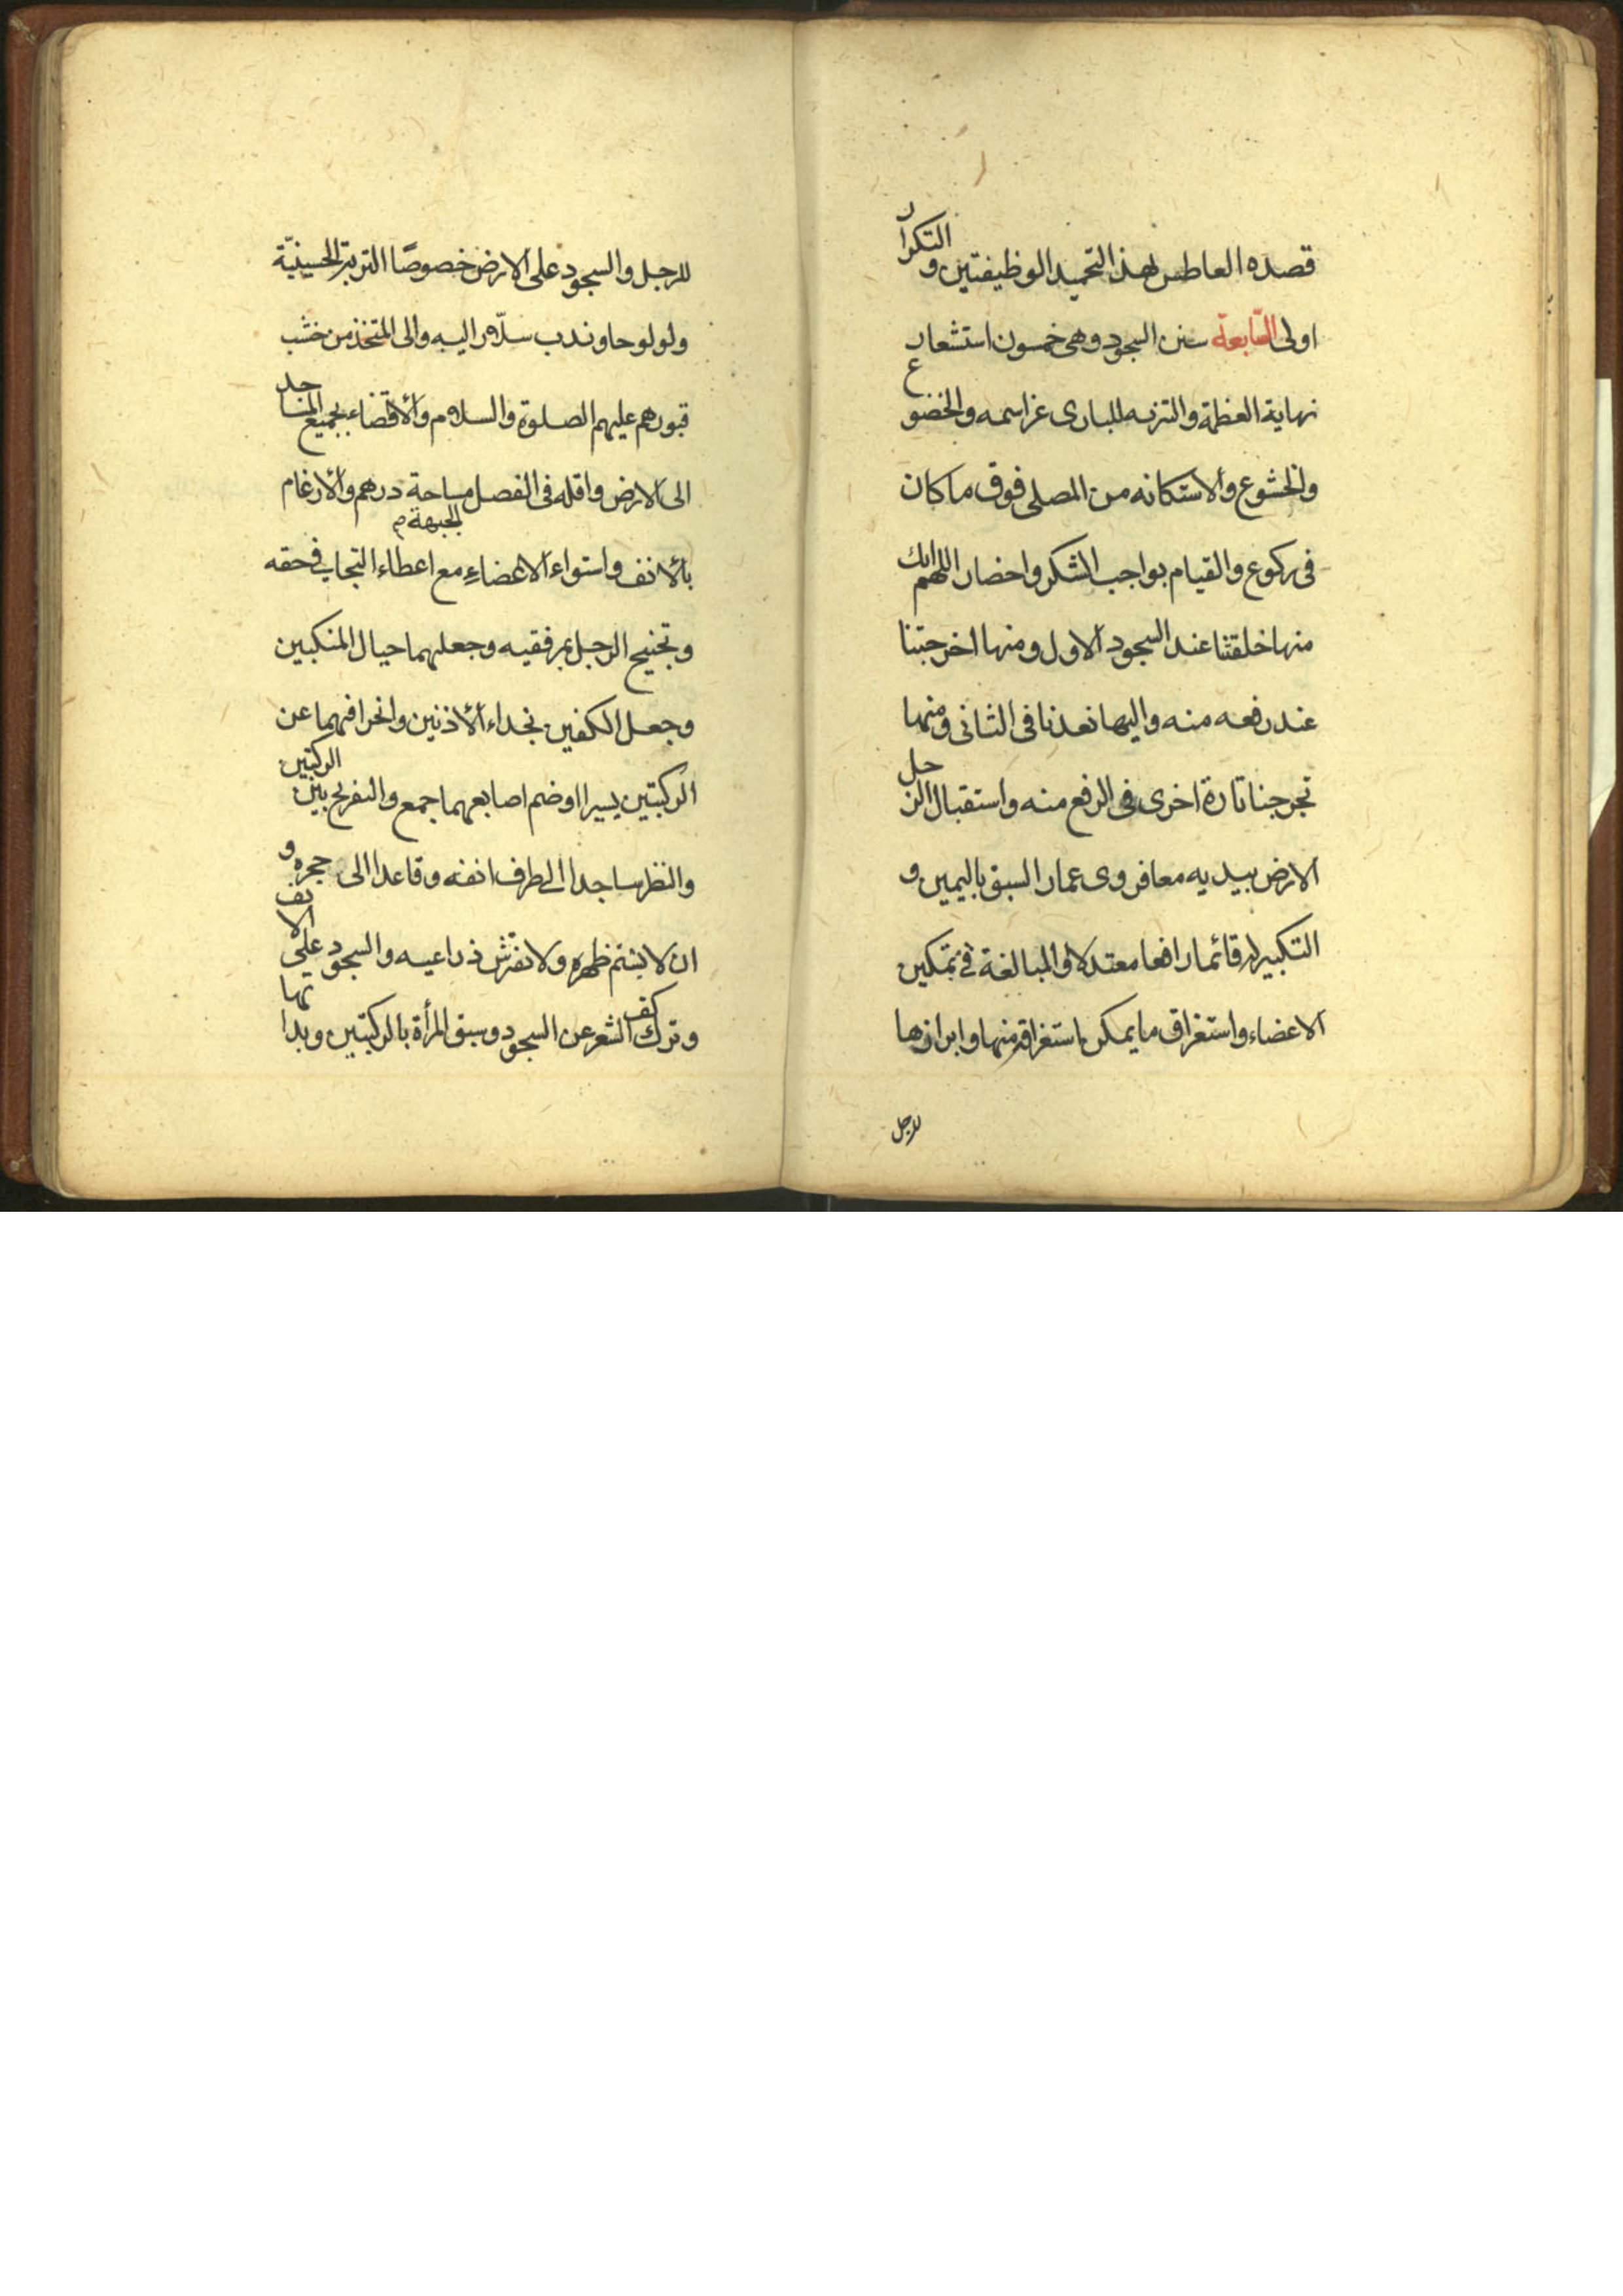 قصده العاطس لهذا التحميد الوظيفتين و التكرار
اولى السّابعة سنن السجود وهى خمسون استشعار
نهاية العظمة والتنزيه للبارى عز اسمه والخضوع
والخشوع والاستكانه من المصلى فوق ما كان
فى ركوع والقيام بواجب الشكر واحضار اللهم انك
منها خلقتنا عند السجود الاول ومنها اخرجتنا
عند رفعه منه واليها تعدنا فى الثانى ومنها
تخرجنا تارة اخرى فى الرفع منه واستقبال الرجل
الارض بيديه معا فروى عمار السبق باليمين و
التكبير له قائما رافعا معتدلا والمبالغة فى تمكين
الاعضاء واستغراق ما يمكن استغراقه منها وابرازها
للرجل
للرجل والسجود على الارض خصوصًا التربة الحسينيّة
ولو لوحا وندب سلّار اليه والى المتخذ من خشب
قبورهم عليهم الصلوة والسلام والافضاء بجميع المساجد
الى الارض واقله فى الفضل مساحة درهم والارغام
للجبهة م
بالانف واستواء الاعضاء مع اعطاء التجافى حقه
وتجنيح الرجل بمرفقيه وجعلهما حيال المنكبين
وجعل الكفين بحذاء الاذنين وانحرافهما عن
الركبتين يسيرا وضم اصابعهما جمع والتفريج بين الركبتين
والنظر ساجدا الى طرف انفه وقاعدا الى حجره و
ان لا يسنم ظهره ولا يفترش ذراعيه والسجود على الانف
وترك كف الشعر عن السجود وسبق المرأة بالركبتين وبداتها